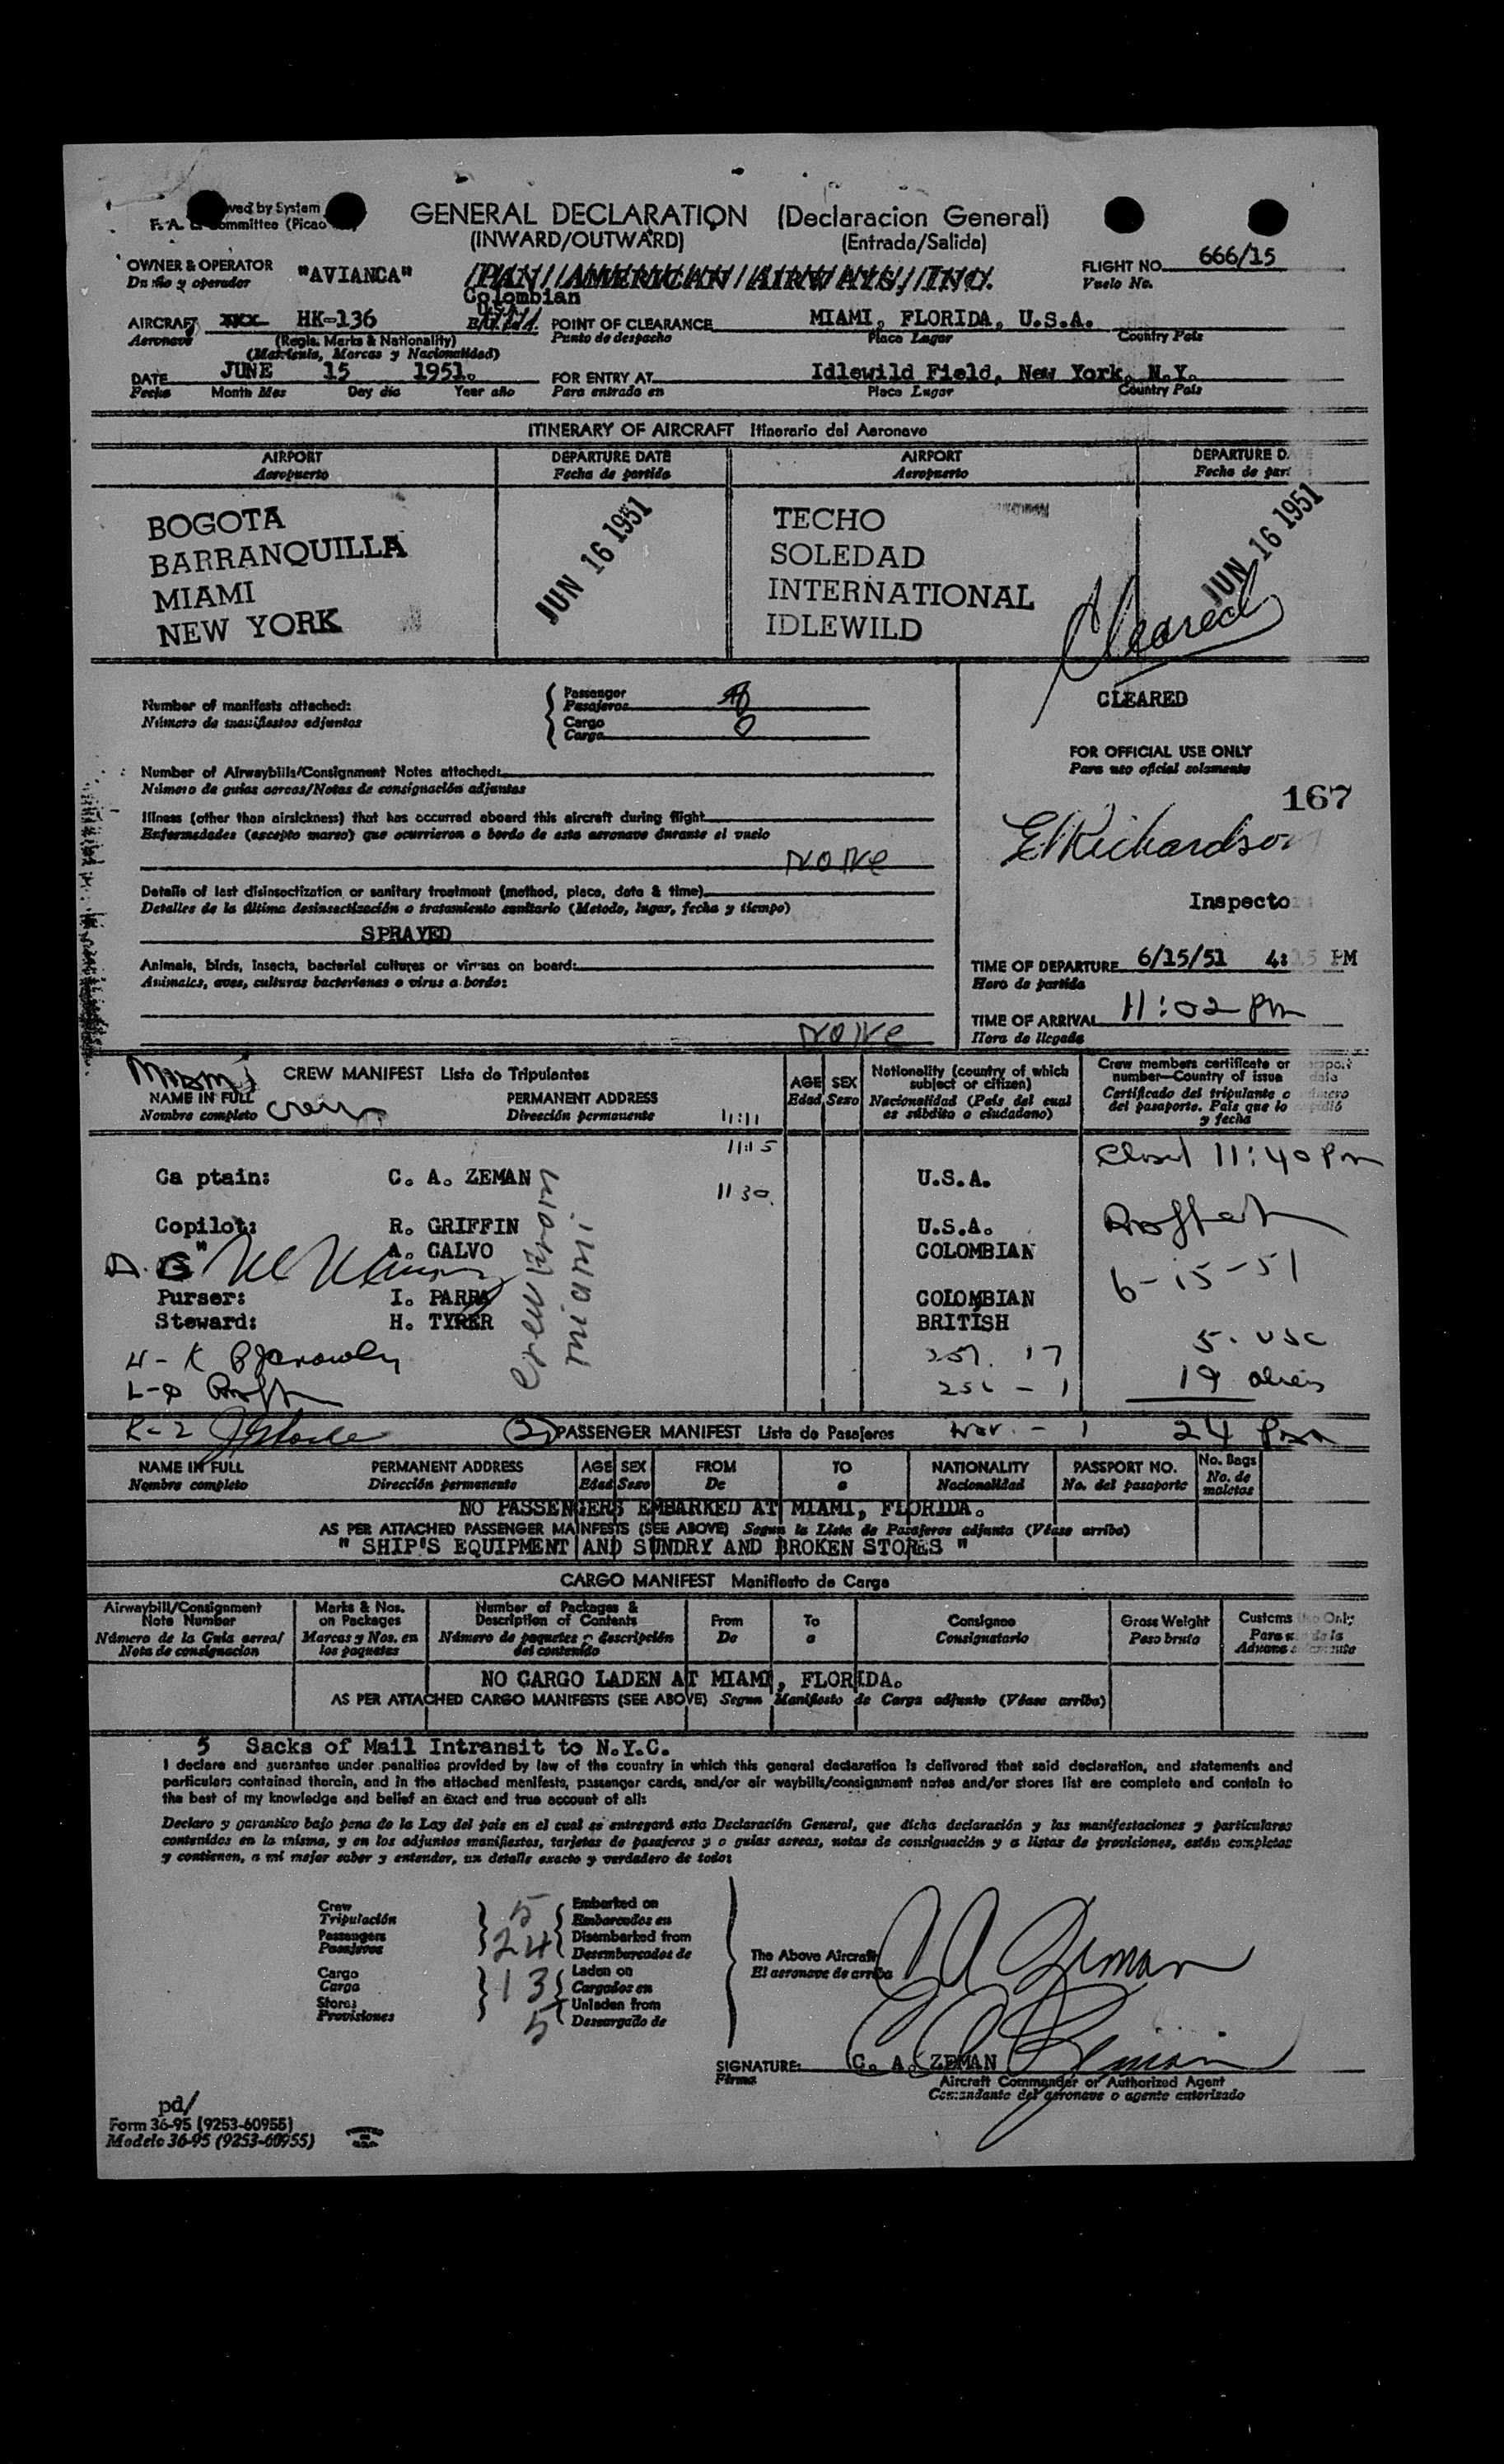 ved by System
F. A. L. Committee (Picao
GENERAL DECLARATION (Declaracion General)
(INWARD/OUTWARD) (Entrada/Salida)
OWNER & OPERATOR "AVIANCA" PAN AMERICAN AIRWAYS, INC.
Dueño y operador
FLIGHT NO. 666/15
Vuelo No.
Colombian
AIRCRAFT XXX HK-136 POINT OF CLEARANCE MIAMI, FLORIDA, U.S.A.
Aeronave (Regis. Marks & Nationality) Punto de despacho Place Lugar Country Pais
(Matricula, Marcas y Nacionalidad)
DATE JUNE 15 1951. FOR ENTRY AT Idlewild Field, New York, N.Y.
Fecha Month Mes Day dia Year año Para entrada en Place Lugar Country Pais
ITINERARY OF AIRCRAFT Itinerario del Aeronave
AIRPORT DEPARTURE DATE AIRPORT DEPARTURE D
Aeropuerto Fecha de partida Aeropuerto Fecha de par
BOGOTA TECHO
BARRANQUILLA SOLEDAD
MIAMI INTERNATIONAL
NEW YORK IDLEWILD
JUN 16 1951 JUN 16 1951
Cleared
Number of manifests attached: Passenger
Número de manifiestos adjuntos Pasajeros
Cargo 0
Carga
CLEARED
FOR OFFICIAL USE ONLY
Para uso oficial solamente
167
Number of Airwaybills/Consignment Notes attached:
Número de guías aereas/Notas de consignación adjuntas
Illness (other than airsickness) that has occurred aboard this aircraft during flight
Enfermedades (excepto mareo) que ocurrieron a bordo de esta aeronave durante el vuelo
NONE
E Richardson
Inspecto
Details of last disinsectization or sanitary treatment (method, place, date & time)
Detalles de la última desinsectización o tratamiento sanitario (Metodo, lugar, fecha y tiempo)
SPRAYED
Animals, birds, insects, bacterial cultures or viruses on board:
Animales, aves, culturas bacterianas o virus a bordo:
NONE
TIME OF DEPARTURE 6/15/51 4:15 PM
Hora de partida
TIME OF ARRIVAL 11:02 pm
Hora de llegada
Miami CREW MANIFEST Lista de Tripulantes
NAME IN FULL PERMANENT ADDRESS
Nombre completo Crew Dirección permanente
AGE SEX
Edad Sexo
Nationality (country of which subject or citizen)
Nacionalidad (País del cual es súbdito o ciudadano)
Crew members certificate or
number—Country of issue
Certificado del tripulante o
del pasaporte. Pais que lo
y fecha
11:11
11:15
1130
Closed 11:40 Pm
Captain: C. A. ZEMAN U.S.A.
Copilot: R. GRIFFIN U.S.A.
" A. CALVO COLOMBIAN
6-15-51
Purser: I. PARRA COLOMBIAN
Steward: H. TYRER BRITISH
Crew from
miami
257. 17 5. USC
256 - 1 19 aliens
K-2
(2) PASSENGER MANIFEST Lista de Pasajeros - 1 24
NAME IN FULL PERMANENT ADDRESS AGE SEX FROM TO NATIONALITY PASSPORT NO. No. Bags
Nombre completo Dirección permanente Edad Sexo De a Nacionalidad No. del pasaporte No. de maletas
NO PASSENGERS EMBARKED AT MIAMI, FLORIDA.
AS PER ATTACHED PASSENGER MAINFESTS (SEE ABOVE) Segun la Lista de Pasajeros adjunta (Véase arriba)
" SHIP'S EQUIPMENT AND SUNDRY AND BROKEN STORES "
CARGO MANIFEST Manifiesto de Carga
Airwaybill/Consignment Note Number
Número de la Guia aerea/ Nota de consignacion
Marks & Nos. on Packages
Marcas y Nos. en los paquetes
Number of Packages & Description of Contents
Número de paquetes y descripción del contenido
From
De
To
a
Consignee
Consignatario
Gross Weight
Peso bruto
Customs Use Only
Para uso de la
Aduana
NO CARGO LADEN AT MIAMI, FLORIDA.
AS PER ATTACHED CARGO MANIFESTS (SEE ABOVE) Segun Manifiesto de Carga adjunto (Véase arriba)
5 Sacks of Mail Intransit to N.Y.C.
I declare and guarantee under penalties provided by law of the country in which this general declaration is delivered that said declaration, and statements and
particulars contained therein, and in the attached manifests, passenger cards, and/or air waybills/consignment notes and/or stores list are complete and contain to
the best of my knowledge and belief an exact and true account of all:
Declaro y garantico bajo pena de la Ley del país en el cual es entregará esta Declaración General, que dicha declaración y las manifestaciones y particulares
contenidos en la misma, y en los adjuntos manifiestos, tarjetas de pasajeros y o guias aereas, notas de consignación y a listas de provisiones, están completas
y contienen, a mi mejor saber y entender, un detalle exacto y verdadero de todo:
Crew 5 Embarked on
Tripulación Embarcados en
Passengers 24 Disembarked from
Pasajeros Desembarcados de
Cargo 13 Laden on
Carga Cargados en
Stores 5 Unladen from
Provisiones Descargado de
The Above Aircraft
El aeronave de arriba
C A Zeman
C A Zeman
SIGNATURE: C. A. ZEMAN
Firma
Aircraft Commander or Authorized Agent
Comandante del aeronave o agente autorizado
pd/
Form 36-95 (9253-60955)
Modelo 36-95 (9253-60955)
PRINTED IN U.S.A.